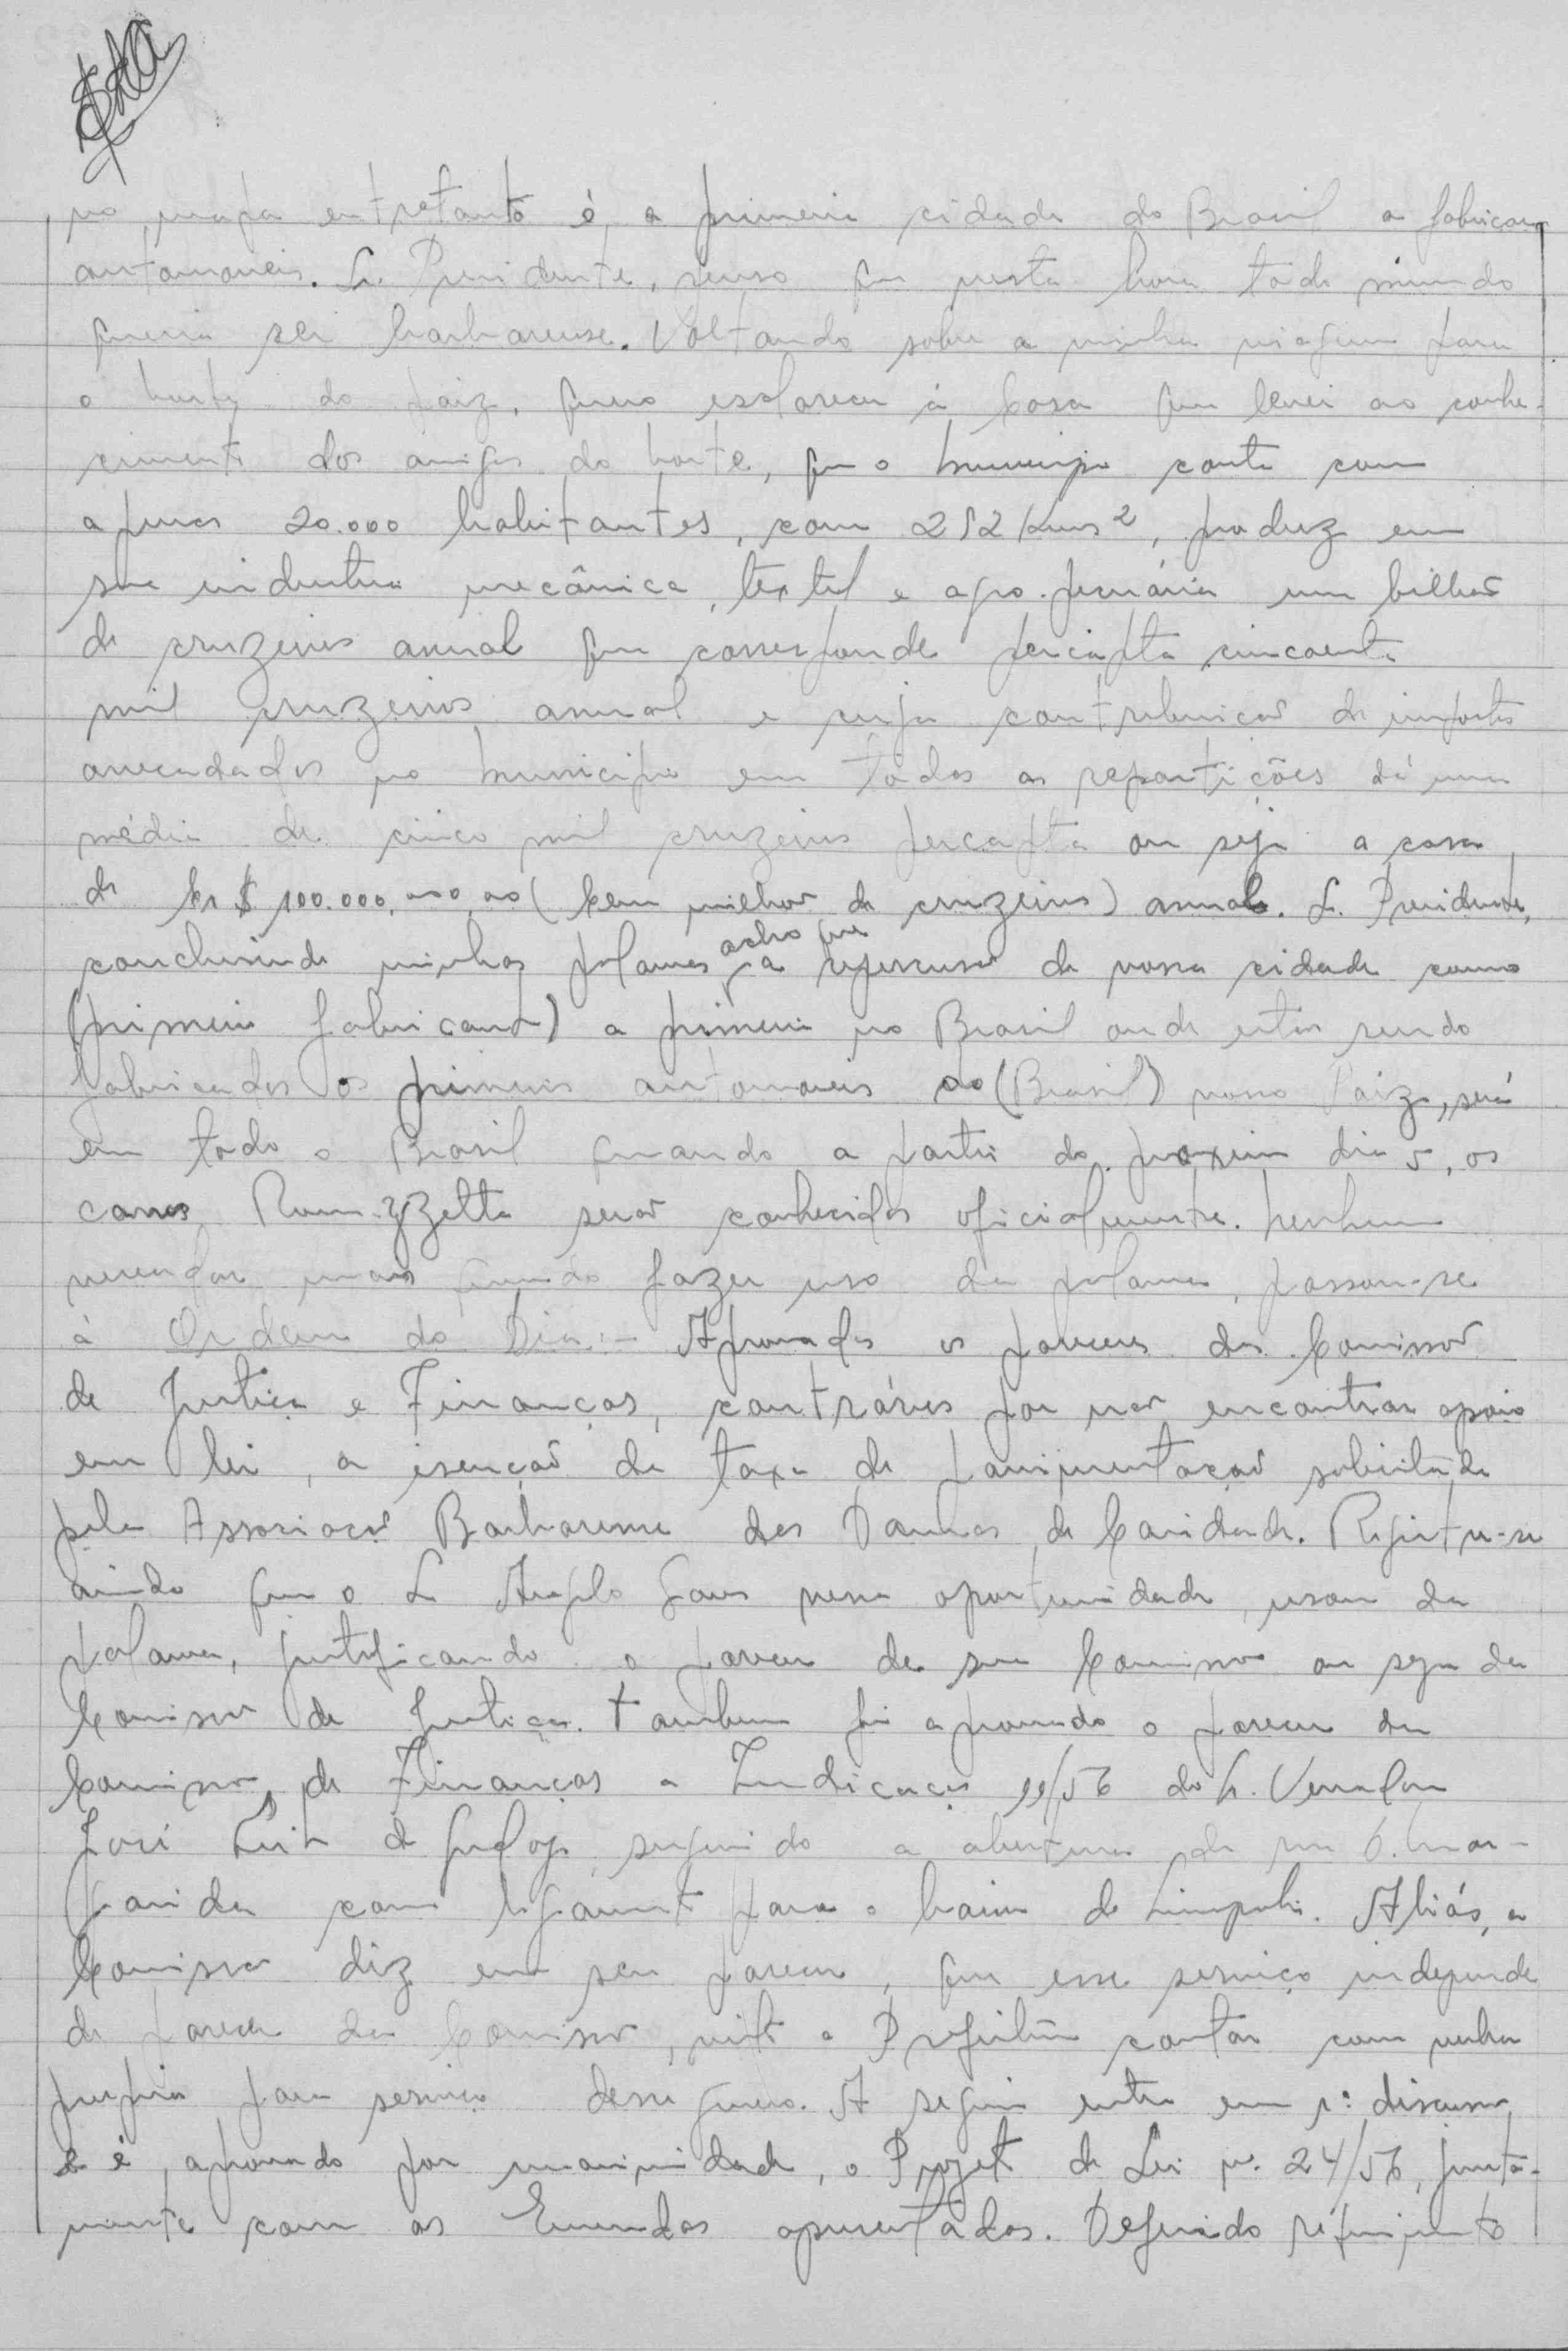 no mapa entretanto é a primeira cidade do Brasil a fabricar
automoveis. Sr. Presidente, penso que nesta hora todo mundo
queria ser barbarense. Voltando sobre a minha viagem para
o Norte do Paiz, quero esclarecer á Casa que levei ao conhe-
cimento dos amigos do Norte, que o Municipio conta com
apenas 20.000 habitantes, com 282 Kms², produz em
sua industria mecânica, textil e agro-pecuária um bilhão
de cruzeiros anual que corresponde percapta cincoenta
mil cruzeiros anual e cuja contribuição de impostos
arrecadados no Municipio em todas as repartições dá uma
média de cinco mil cruzeiros percapta ou seja a casa
de Cr$ 100.000.000,00 (Cem milhões de cruzeiros) anual. Sr. Presidente,
concluindo minhas palavras acho que a repercussão de nossa cidade como
(primeira fabricante) a primeira no Brasil onde estão sendo
fabricados os primeiros automoveis do (Brasil) nosso Paiz, será
em todo o Brasil quando a partir do proximo dia 5, os
carros Romi-Izzetta serão conhecidos oficialmente. Nenhum
vereador mais querendo fazer uso da palavra, passou-se
á Ordem do Dia:- Aprovados os pareceres das Comissões
de Justiça e Finanças, contrários por não encontrar apoio
em lei, a isenção da taxa de pavimentação solicitada
pela Associação Barbarense das Damas de Caridade. Registre-se
ainda que o Sr. Angelo nessa oportunidade, usou da
palavra, justificando o parecer de sua Comissão ou seja da
Comissão de Justiça. Tambem foi aprovado o parecer da
Comissão de Finanças a Indicação 11/56 do Sr. Vereador
José de sugerindo a abertura de um
com para o bairro de. Aliás, a
Comissão diz em seu parecer, que esse serviço independe
de parecer da Comissão, visto a Prefeitura contar com verba
propria para serviço desse genero. A seguir entra em 1ª discussão
e é aprovado por unanimidade, o Projeto de Lei nº 24/56, junta-
mente com as Emendas apresentadas. Deferido requerimento